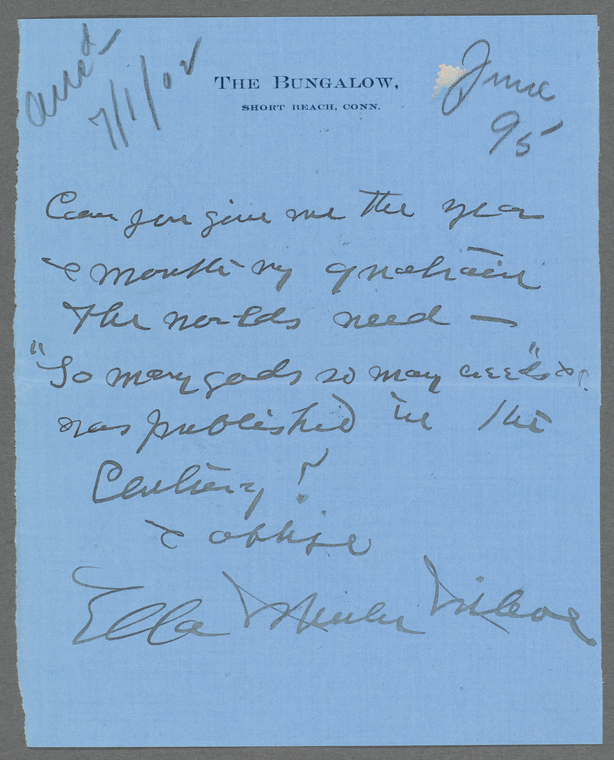 Ansd
7/1/02
THE BUNGALOW,
SHORT BEACH, CONN.
June
95
Can you give me the year
& month my quatrain
The worlds need —
"So many gods so many creeds" &c.
was published in the
Century?
& oblige
Ella Wheeler Wilcox